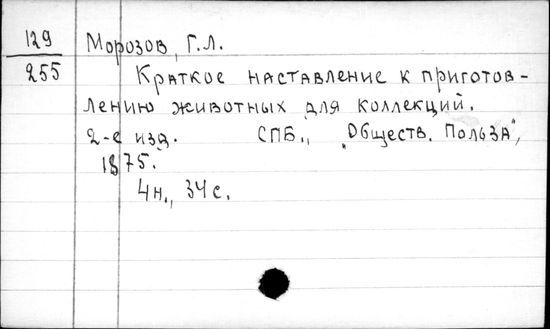 129
255
Морозов, Г.Л.
Краткое наставление к приготов-
лению животных для коллекций.
2-е изд. СПБ., "Обществ. Польза",
1875.
4н., 34с.